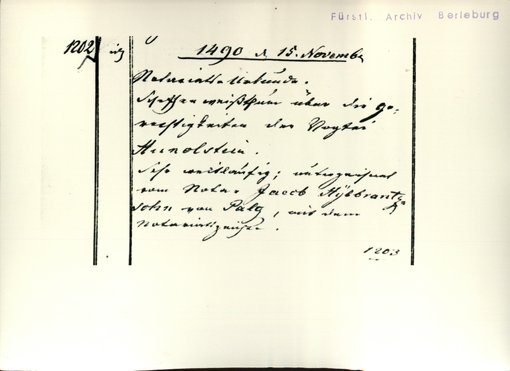 Fürstl. Archiv Berleburg
1202
1490 d 15. November
Notariats-Urkunde.
Scheffenweißthum über die Ge-
rechtigkeiten der Vogtei
Hunolstein.
Sehr weitläufig; unterzeichnet
vom Notar Jacob Hilbrantz
sohn von Palz, mit dem
Notariatszeichen.
1203